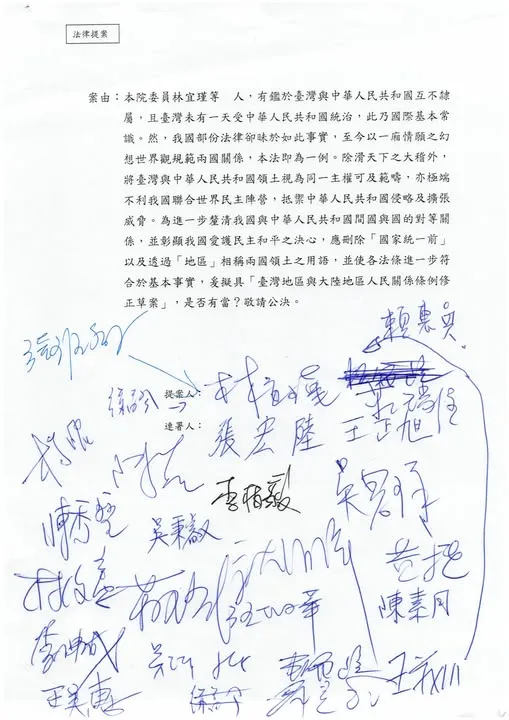 法律提案
案由：本院委員林宜瑾等　人，有鑑於臺灣與中華人民共和國互不隸
屬，且臺灣未有一天受中華人民共和國統治，此乃國際基本常
識。然，我國部份法律卻昧於如此事實，至今以一廂情願之幻
想世界觀規範兩國關係，本法即為一例。除滑天下之大稽外，
將臺灣與中華人民共和國領土視為同一主權可及範疇，亦極端
不利我國聯合世界民主陣營，抵禦中華人民共和國侵略及擴張
威脅。為進一步釐清我國與中華人民共和國間國與國的對等關
係，並彰顯我國愛護民主和平之決心，應刪除「國家統一前」
以及透過「地區」相稱兩國領土之用語，並使各法條進一步符
合於基本事實，爰擬具「臺灣地區與大陸地區人民關係條例修
正草案」，是否有當？敬請公決。
賴惠員
提案人：
林宜瑾
連署人：
張宏陸
王正旭
李柏毅
陳秀寶
吳秉叡
陳素月
李坤城
王美惠
王義川